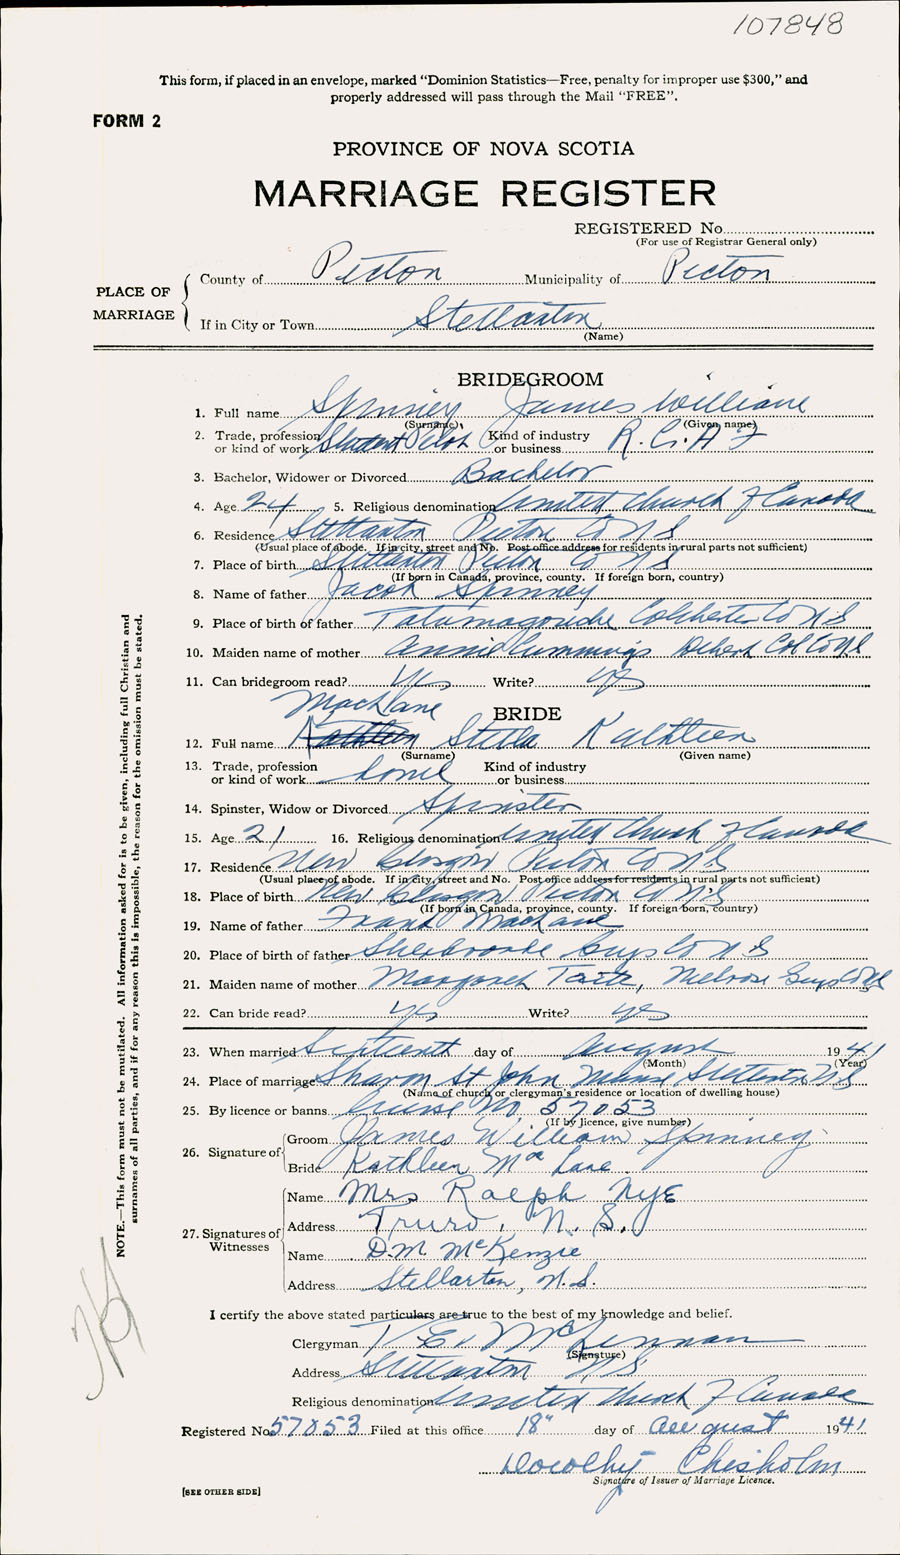 107848
This form, if placed in an envelope, marked "Dominion Statistics—Free, penalty for improper use $300," and
properly addressed will pass through the Mail "FREE".
FORM 2
PROVINCE OF NOVA SCOTIA
MARRIAGE REGISTER
REGISTERED No.
(For use of Registrar General only)
PLACE OF MARRIAGE
County of Pictou Municipality of Pictou
If in City or Town Stellarton
(Name)
BRIDEGROOM
1. Full name Spinney James William
(Surname) (Given name)
2. Trade, profession or kind of work Student Pilot Kind of industry or business R.C.A.F
3. Bachelor, Widower or Divorced Bachelor
4. Age 24 5. Religious denomination United Church of Canada
6. Residence Stellarton Pictou Co N S
(Usual place of abode. If in city, street and No. Post office address for residents in rural parts not sufficient)
7. Place of birth Stellarton Pictou Co N S
(If born in Canada, province, county. If foreign born, country)
8. Name of father Jacob Spinney
9. Place of birth of father Tatamagouche Colchester Co N S
10. Maiden name of mother Annie Cummings Debert Col Co N S
11. Can bridegroom read? Yes Write? Yes
BRIDE
MacLane
12. Full name Kathleen Stella Kathleen
(Surname) (Given name)
13. Trade, profession or kind of work home Kind of industry or business
14. Spinster, Widow or Divorced Spinster
15. Age 21 16. Religious denomination United Church of Canada
17. Residence New Glasgow Pictou Co N S
(Usual place of abode. If in city, street and No. Post office address for residents in rural parts not sufficient)
18. Place of birth New Glasgow Pictou Co N S
(If born in Canada, province, county. If foreign born, country)
19. Name of father Frank MacLane
20. Place of birth of father Sherbrooke Guys Co N S
21. Maiden name of mother Margaret Tate, Melrose Guys Co N S
22. Can bride read? Yes Write? Yes
23. When married day of August 1941
(Month) (Year)
24. Place of marriage Sharon St John Manse Stellarton N S
(Name of church or clergyman's residence or location of dwelling house)
25. By licence or banns License No 57053
(If by licence, give number)
26. Signature of
Groom James William Spinney
Bride Kathleen MacLane
27. Signatures of Witnesses
Name Mrs Ralph Nye
Address Truro, N. S.
Name D.M. McKenzie
Address Stellarton, N.S.
I certify the above stated particulars are true to the best of my knowledge and belief.
Clergyman McLennan
(Signature)
Address Stellarton N S
Religious denomination United Church of Canada
Registered No. 57053 Filed at this office 18" day of August 1941
Dorothy Chisholm
Signature of Issuer of Marriage Licence.
[SEE OTHER SIDE]
NOTE.—This form must not be mutilated. All information asked for is to be given, including full Christian and
surnames of all parties, and if for any reason this is impossible, the reason for the omission must be stated.